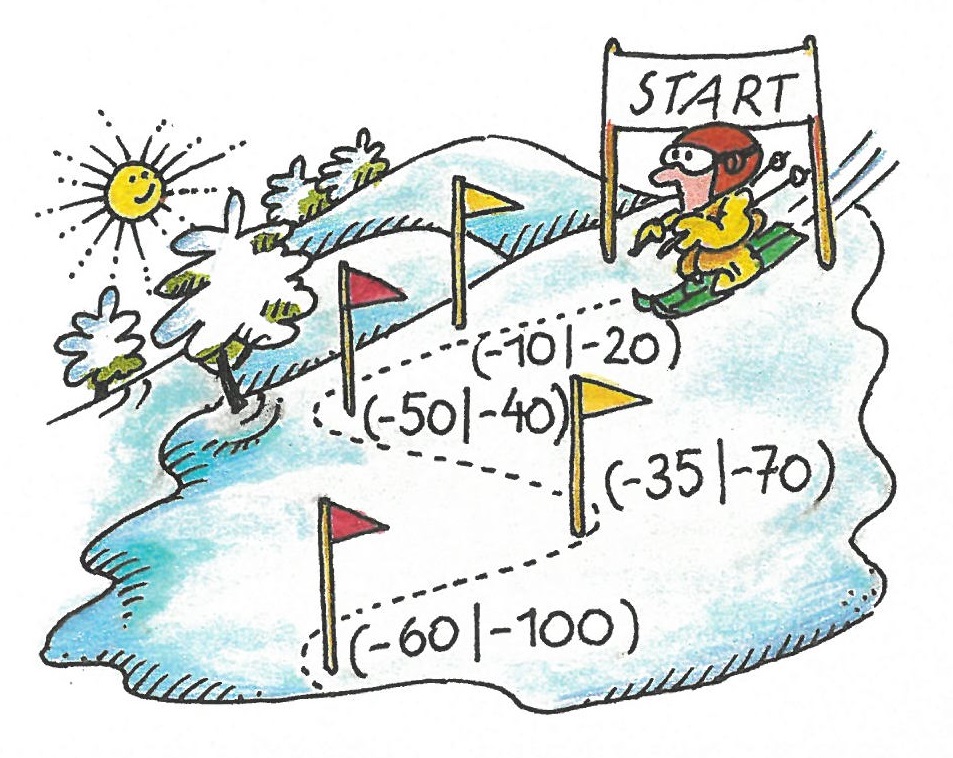 START
(-10|-20)
(-50|-40)
(-35|-70)
(-60|-100)